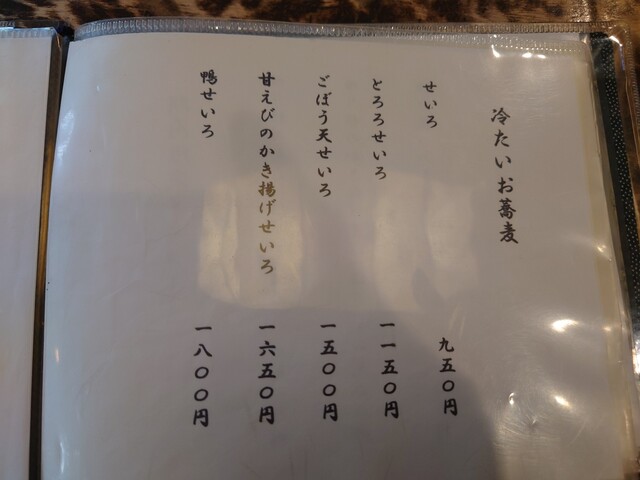 冷たいお蕎麦
せいろ 九五〇円
とろろせいろ 一一五〇円
ごぼう天せいろ 一五〇〇円
甘えびのかき揚げせいろ 一六五〇円
鴨せいろ 一八〇〇円